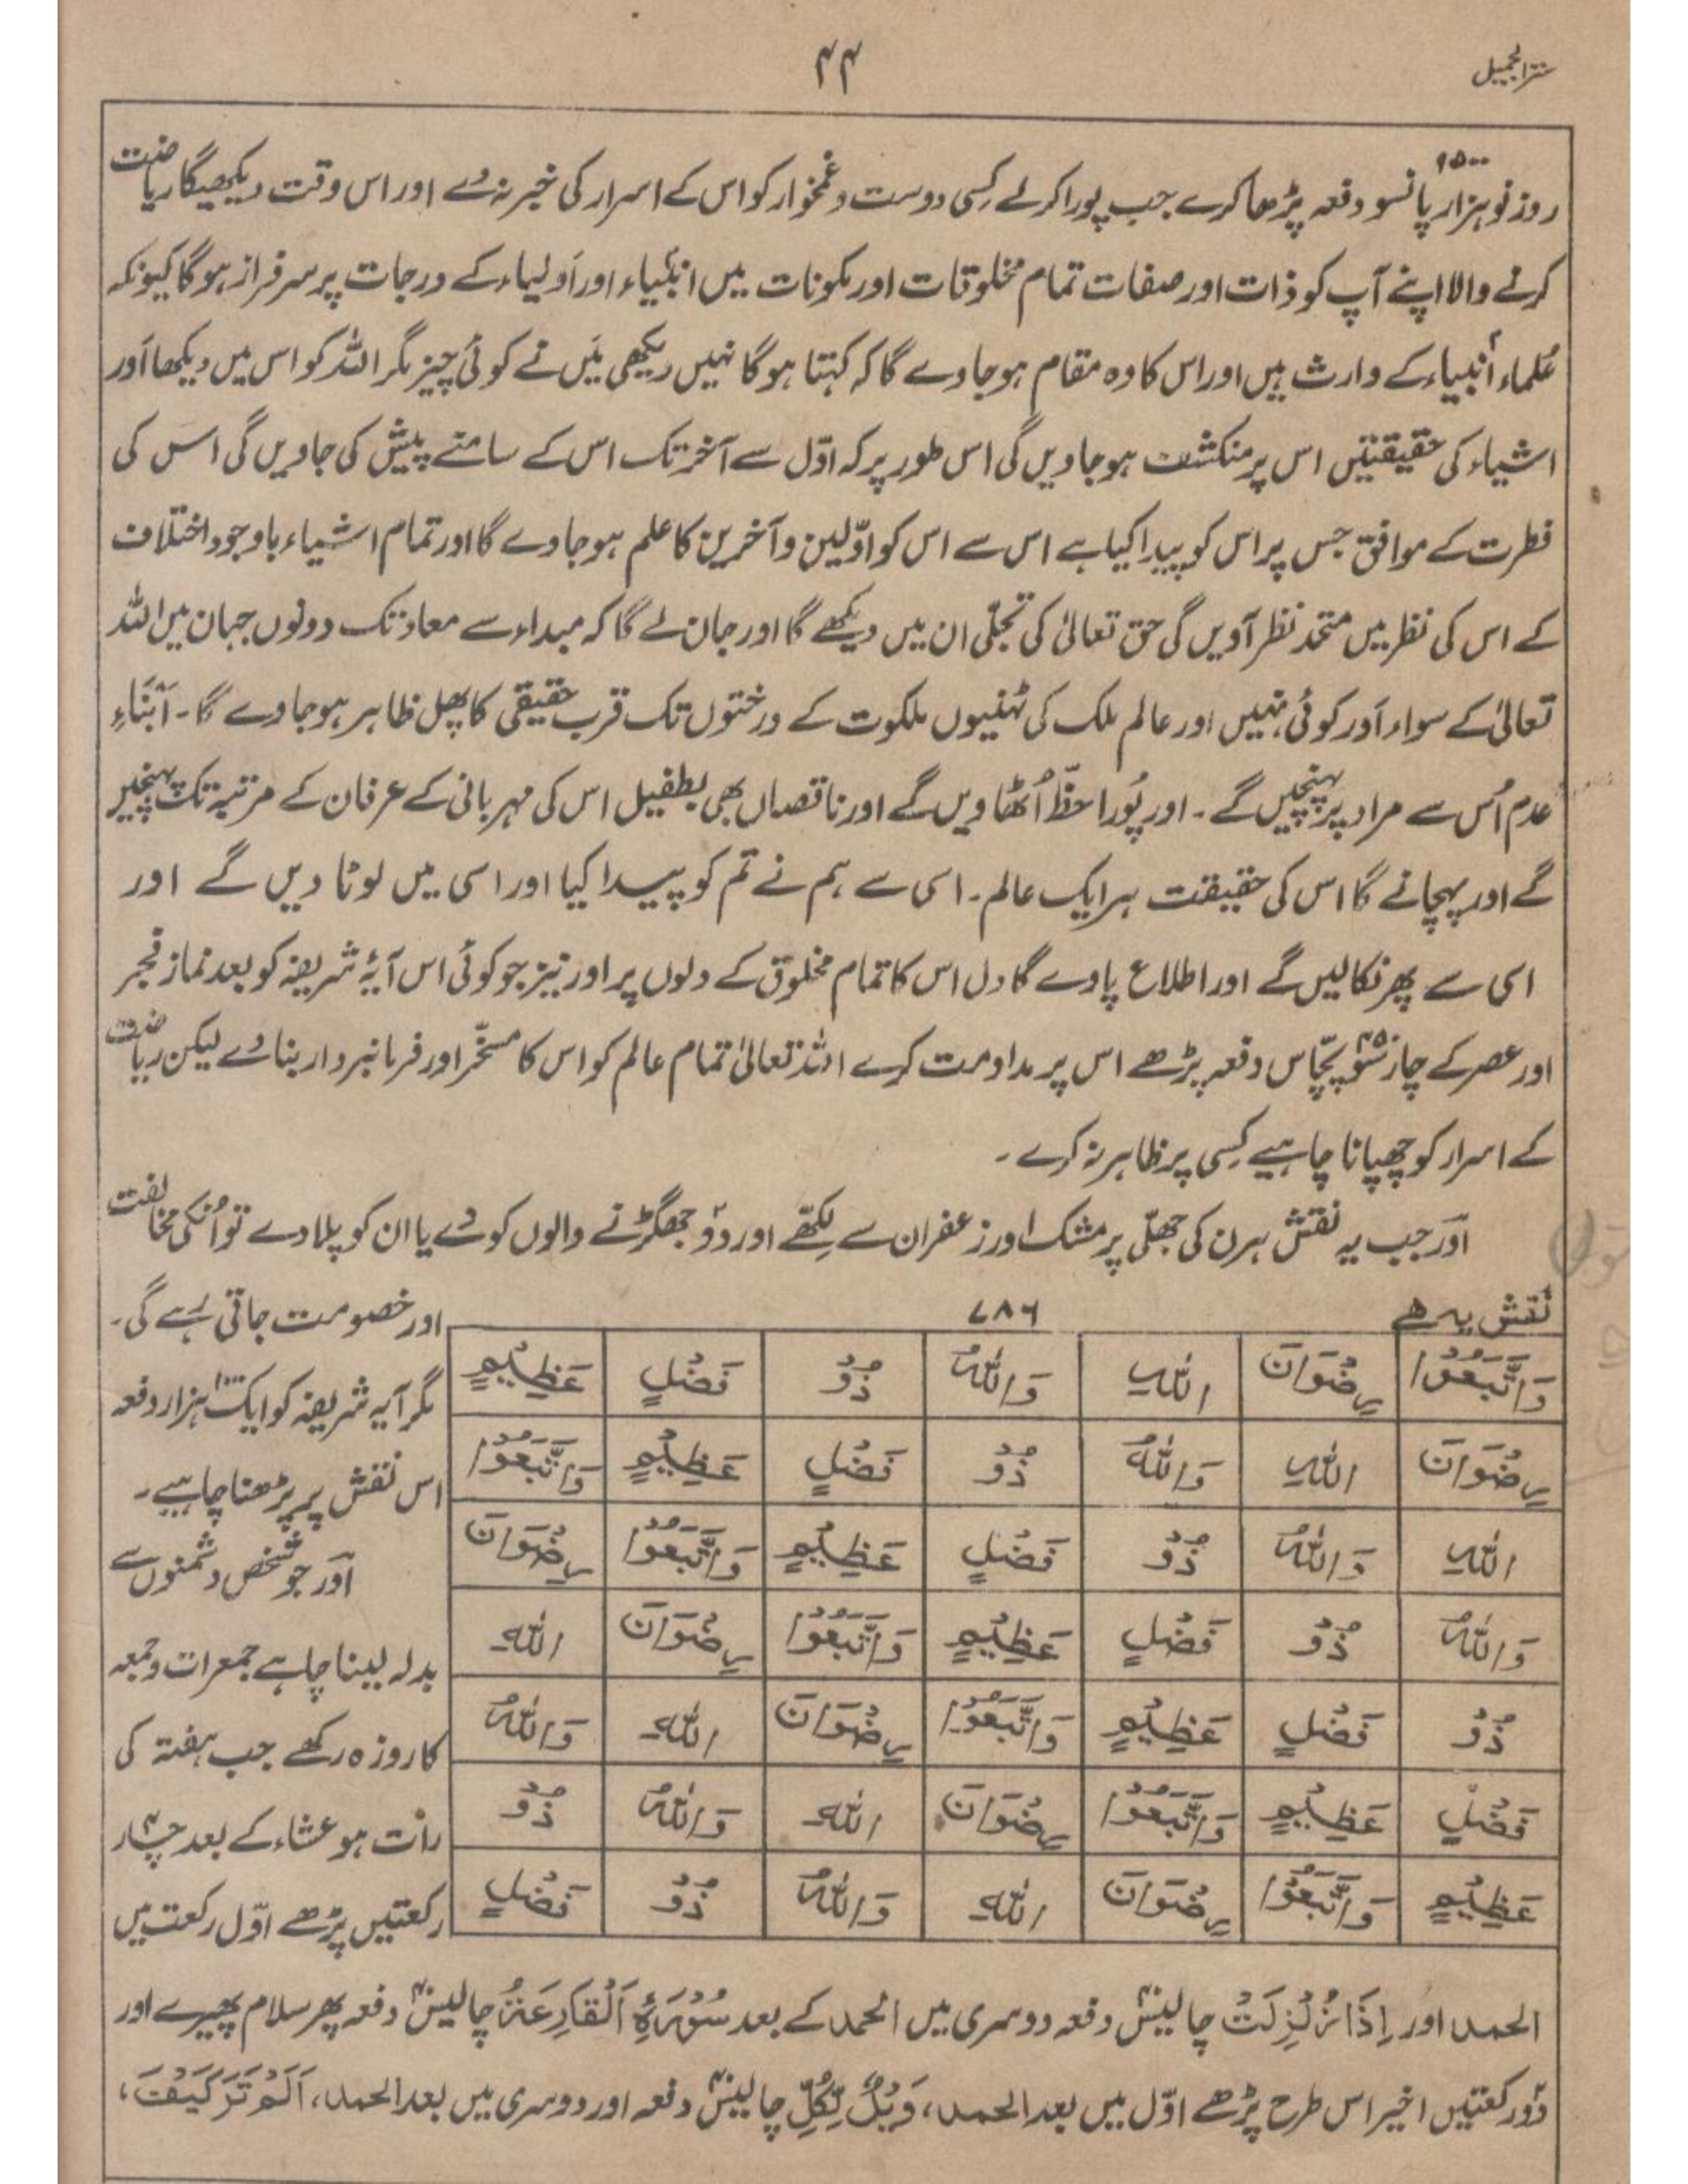 سترالجمیل
۴۴
روز نو ہزار پانسو ۹۵۰۰ دفعہ پڑھا کرے جب پورا کرلے کسی دوست و غمخوار کو اس کے اسرار کی خبر نہ دے اور اس وقت دیکھیگا ریاضت
کرنے والا اپنے آپ کو ذات اور صفات تمام مخلوقات اور مکونات میں انبیاء اور اولیاء کے درجات پر سرفراز ہوگا کیونکہ
عُلماء أنبیاء کے وارث ہیں اور اس کا وہ مقام ہو جاوے گا کہ کہتا ہوگا نہیں دیکھی میَں نے کوئی چیز مگر اللہ کو اس میں دیکھا اَور
اشیاء کی حقیقتیں اس پر منکشف ہو جاویں گی اس طور پر کہ اوّل سے آخر تک اس کے سامنے پیش کی جاویں گی اس کی
فطرت کے موافق جس پر اس کو پیدا کیا ہے اس سے اس کو اوّلین و آخرین کا علم ہو جاوے گا اور تمام اشیاء باوجود اختلاف
کے اس کی نظر میں متحد نظر آویں گی حق تعالیٰ کی تجلّی ان میں دیکھے گا اور جان لے گا کہ مبداء سے معاد تک دونوں جہان میں اللہ
تعالیٰ کے سواء اَور کوئی نہیں اور عالم ملک کی ٹہنیوں ملکوت کے درختوں تک قرب حقیقی کا پھل ظاہر ہو جاوے گا۔ اَبْنَاءِ
عدم اُس سے مراد پر پہنچیں گے۔ اور پُورا حظّ اُٹھاویں گے اور ناقصاں بھی بطفیل اس کی مہربانی کے عرفان کے مرتبہ تک پہنچیں
گے اور پہچانے گا اس کی حقیقت ہر ایک عالم۔ اسی سے ہم نے تم کو پیدا کیا اور اسی میں لوٹا دیں گے اور
اسی سے پھر نکالیں گے اور اطلاع پاوے گا دل اس کا تمام مخلوق کے دلوں پر اور نیز جو کوئی اس آیۂ شریفہ کو بعد نماز فجر
اور عصر کے چار سَو پچّاس ۴۵۰ دفعہ پڑھے اس پر مداومت کرے اللہ تعالیٰ تمام عالم کو اس کا مسخّر اور فرمانبردار بنا دے لیکن ریاضت
کے اسرار کو چھپانا چاہیے کسی پر ظاہر نہ کرے۔
اَور جب یہ نقش ہرن کی جھلّی پر مشک اور زعفران سے لکھّے اور دو جھگڑنے والوں کو دے یا ان کو پلا دے تو اُنکی مخالفت
نقش یہ ہے
۷۸۶
وَاتَّبَعُوْا رِضْوَانَ اللّٰهِ وَاللّٰهُ ذُوْ فَضْلٍ عَظِيْمٍ
رِضْوَانَ اللّٰهِ وَاللّٰهُ ذُوْ فَضْلٍ عَظِيْمٍ وَاتَّبَعُوْا
اللّٰهِ وَاللّٰهُ ذُوْ فَضْلٍ عَظِيْمٍ وَاتَّبَعُوْا رِضْوَانَ
وَاللّٰهُ ذُوْ فَضْلٍ عَظِيْمٍ وَاتَّبَعُوْا رِضْوَانَ اللّٰهِ
ذُوْ فَضْلٍ عَظِيْمٍ وَاتَّبَعُوْا رِضْوَانَ اللّٰهِ وَاللّٰهُ
فَضْلٍ عَظِيْمٍ وَاتَّبَعُوْا رِضْوَانَ اللّٰهِ وَاللّٰهُ ذُوْ
عَظِيْمٍ وَاتَّبَعُوْا رِضْوَانَ اللّٰهِ وَاللّٰهُ ذُوْ فَضْلٍ
اور خصومت جاتی رہے گی۔
مگر آیہ شریفہ کو ایک ہزار ۱۰۰۰ دفعہ
اس نقش پر پڑھنا چاہیے۔
اَور جو شخص دشمنوں سے
بدلہ لینا چاہے جمعرات وجمعہ
کا روزہ رکھے جب ہفتہ کی
رات ہو عشاء کے بعد چار ۴
رکعتیں پڑھے اوّل رکعت میں
الحمد اور اِذَا زُلْزِلَتْ چالیس ۴۰ دفعہ دوسری میں الحمد کے بعد سُوْرَۃُ اَلْقَارِعَۃُ چالیس ۴۰ دفعہ پھر سلام پھیرے اور
دو رکعتیں اخیر اس طرح پڑھے اوّل میں بعد الحمد، وَیْلٌ لِّکُلِّ چالیس ۴۰ دفعہ اور دوسری میں بعد الحمد، اَلَمْ تَرَکَیْفَ،